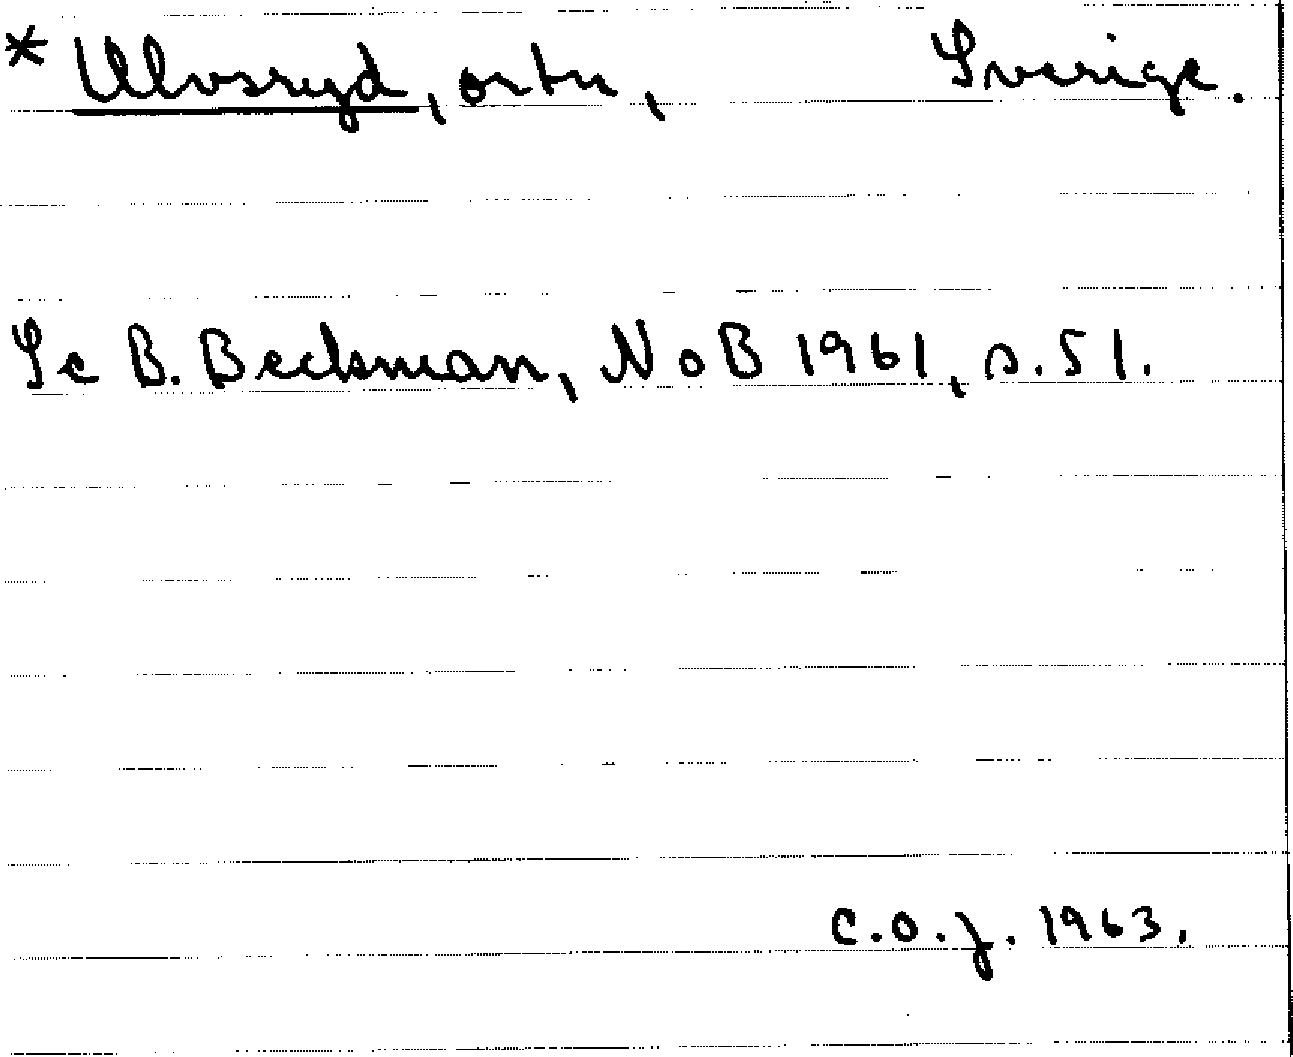 * Ulvsryd, ortn, Sverige.
Se B. Beckman, NoB 1961, s. 51.
C.O.J. 1963.